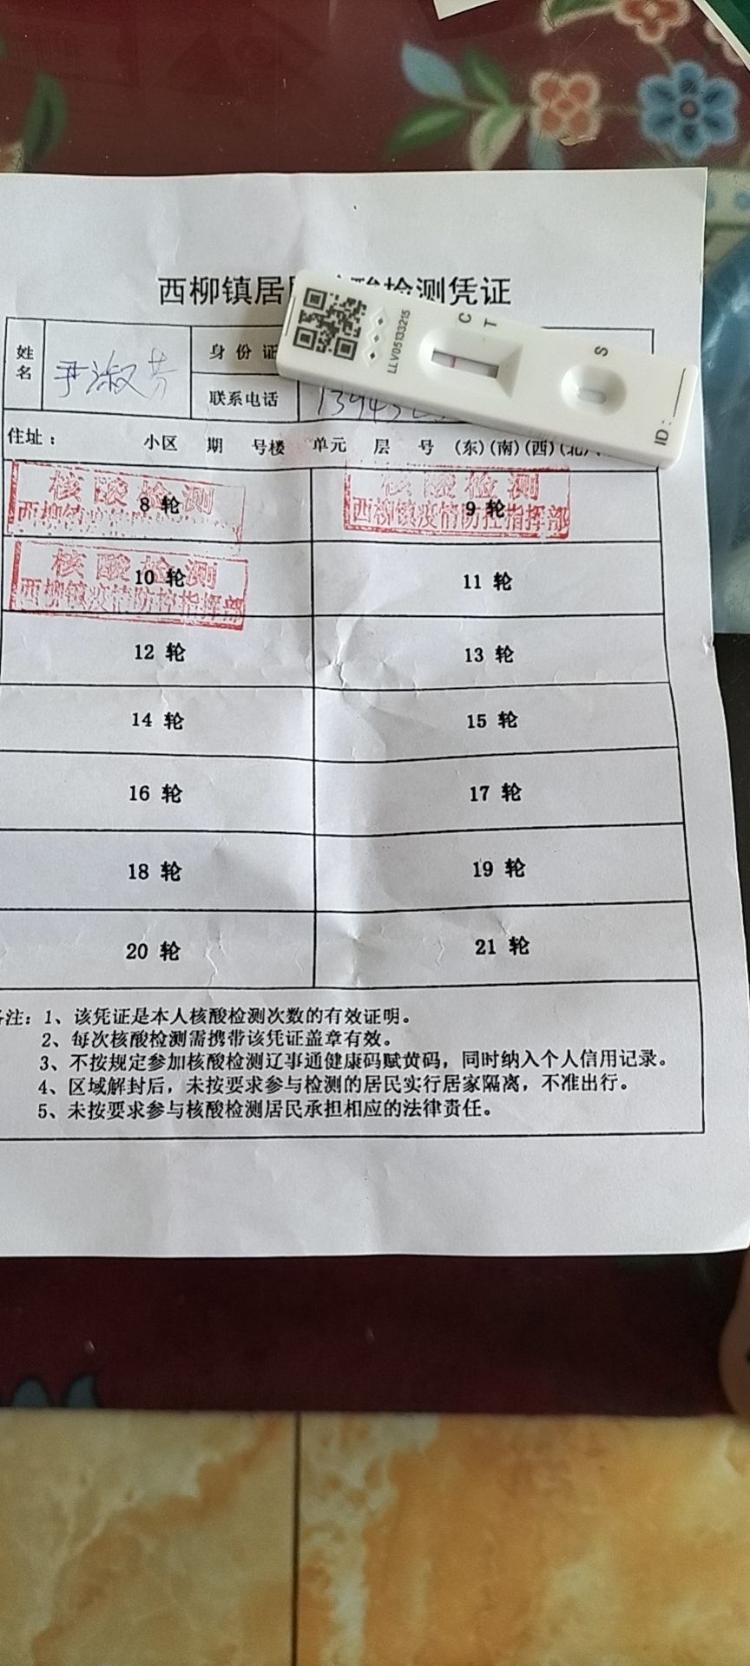 西柳镇居 检测凭证
LLV05133215
C
T
S
ID:
姓名
尹淑芳
身份证
联系电话
住址: 小区 期 号楼 单元 层 号 (东)(南)(西)(北
核酸检测
西柳镇疫情防控指挥部
8 轮
核酸检测
西柳镇疫情防控指挥部
9 轮
核酸检测
西柳镇疫情防控指挥部
10 轮
11 轮
12 轮
13 轮
14 轮
15 轮
16 轮
17 轮
18 轮
19 轮
20 轮
21 轮
注: 1、该凭证是本人核酸检测次数的有效证明。
2、每次核酸检测需携带该凭证盖章有效。
3、不按规定参加核酸检测辽事通健康码赋黄码，同时纳入个人信用记录。
4、区域解封后，未按要求参与检测的居民实行居家隔离，不准出行。
5、未按要求参与核酸检测居民承担相应的法律责任。